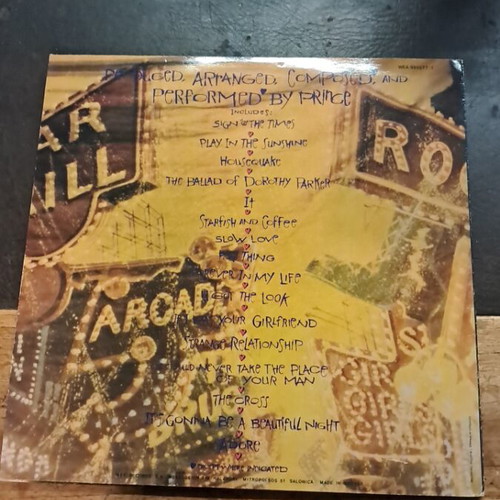 PRODUCED, ARRANGED, COMPOSED, AND
PERFORMED BY PRINCE
INCLUDES:
SIGN THE TIMES
PLAY IN THE SUNSHINE
HOUSEQUAKE
THE BALLAD OF DOROTHY PARKER
It
STARFISH AND COFFEE
SLOW LOVE
THING
FOREVER IN MY LIFE
GOT THE LOOK
YOUR GIRLFRIEND
STRANGE RELATIONSHIP
NEVER TAKE THE PLACE
OF YOUR MAN
THE CROSS
IT'S GONNA BE A BEAUTIFUL NIGHT
ADORE
INDICATED
AR
ILL
RO
ARCADE